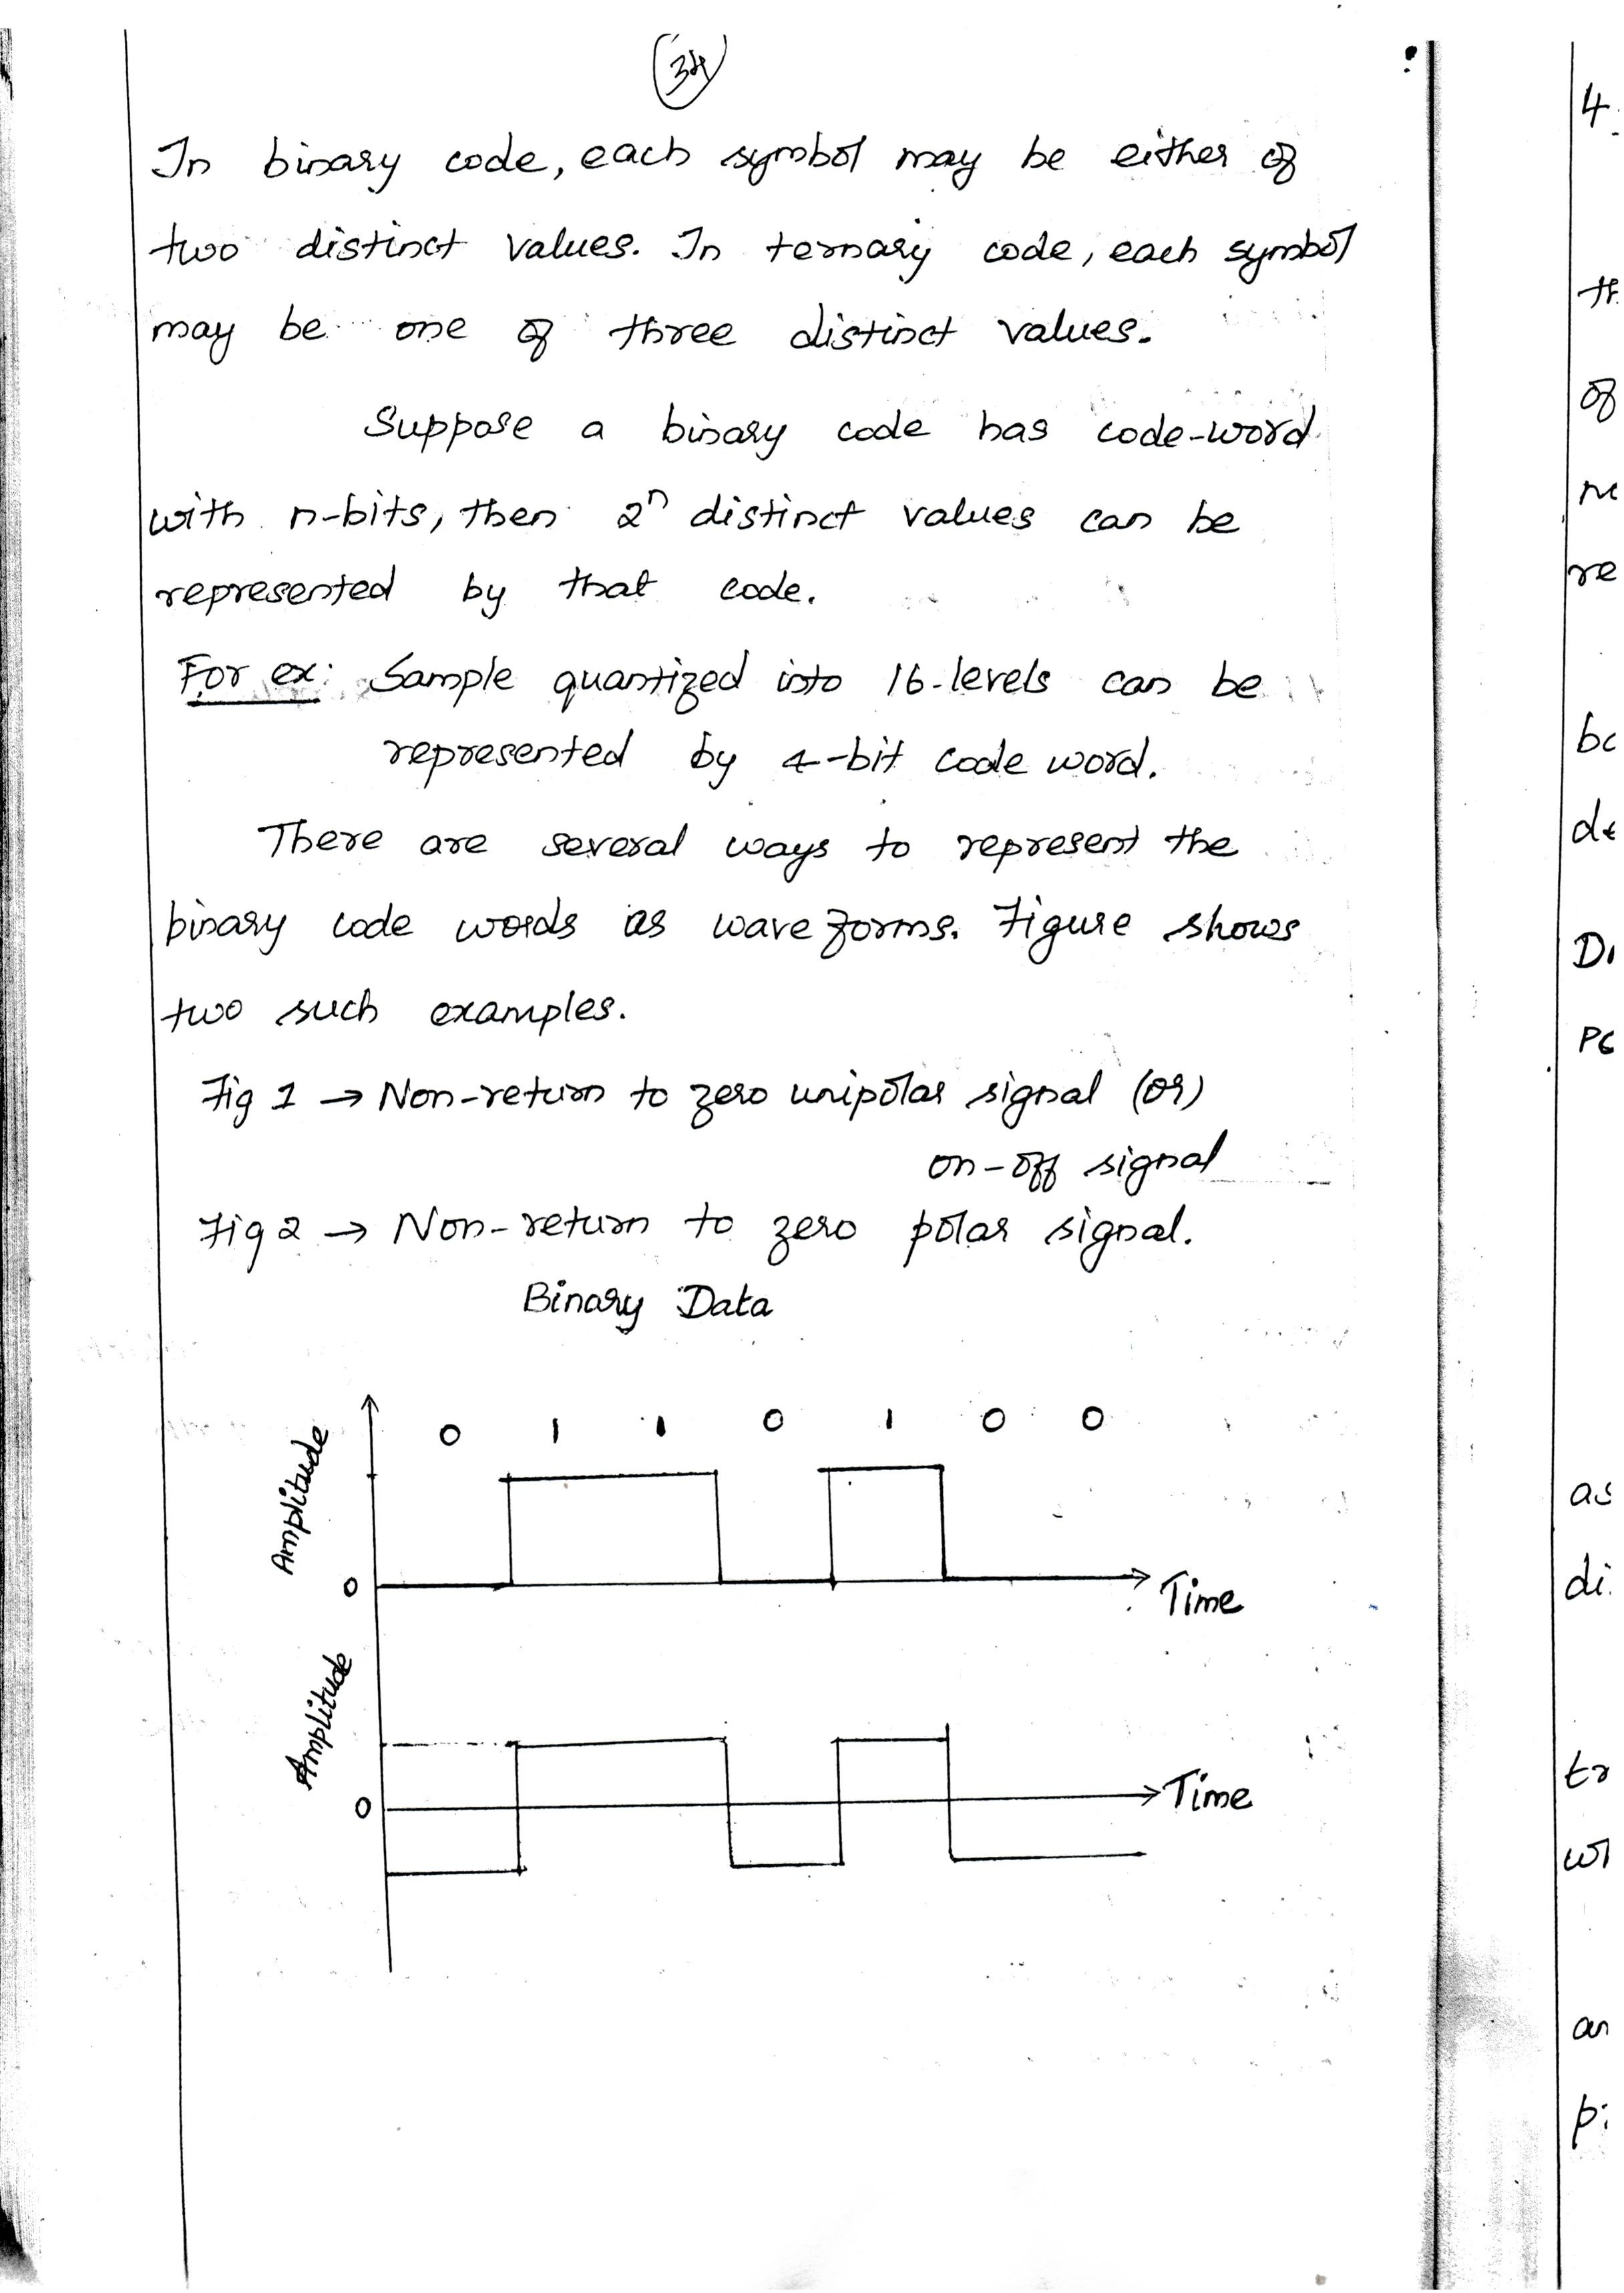 34
In binary code, each symbol may be either of
two distinct values. In ternary code, each symbol
may be one of three distinct values.
Suppose a binary code has code-word
with n-bits, then 2ⁿ distinct values can be
represented by that code.
For ex: Sample quantized into 16-levels can be
represented by 4-bit code word.
There are several ways to represent the
binary code words as wave forms. Figure shows
two such examples.
Fig 1 → Non-return to zero unipolar signal (or)
on-off signal
Fig 2 → Non-return to zero polar signal.
Binary Data
0 1 1 0 1 0 0
Amplitude
0
Time
Amplitude
0
Time
4.
of
re
as
di
an